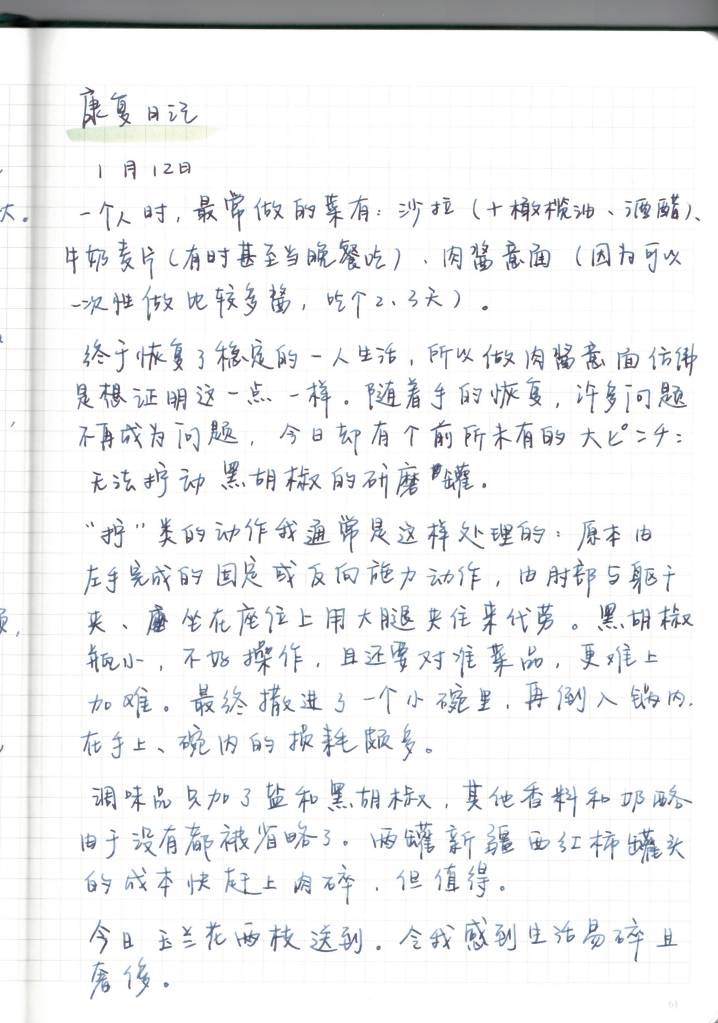 康复日记
1月12日
一个人时，最常做的菜有：沙拉（+橄榄油、酒醋）、
牛奶麦片（有时甚至当晚餐吃）、肉酱意面（因为可以
一次性做比较多酱，吃个2、3天）。
终于恢复了稳定的一人生活，所以做肉酱意面仿佛
是想证明这一点一样。随着手的恢复，许多问题
不再成为问题，今日却有个前所未有的大ピンチ：
无法拧动黑胡椒的研磨罐。
“拧”类的动作我通常是这样处理的：原本由
左手完成的固定或反向施力动作，由肘部与躯干
夹、坐在座位上用大腿夹住来代劳。黑胡椒
瓶小，不好操作，且还要对准菜品，更难上
加难。最终撒进了一个小碗里，再倒入锅内，
在手上、碗内的损耗颇多。
调味品只加了盐和黑胡椒，其他香料和奶酪
由于没有都被省略了。两罐新疆西红柿罐头
的成本快赶上肉碎，但值得。
今日玉兰花两枝送到。令我感到生活易碎且
奢侈。
61
大。